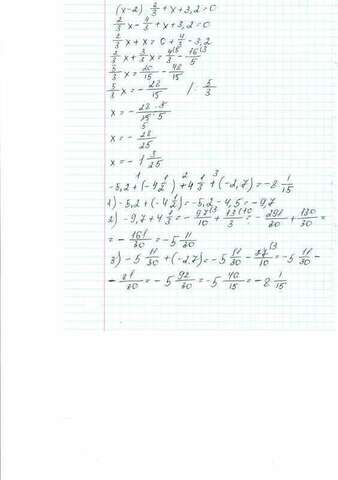 (x-2)·2/3+x+3,2=0
2/3x-4/3+x+3,2=0
2/3x+x=0+4/3-3,2
2/3x+3/3x=4/3-16/5
5/3x=20/15-48/15
5/3x=-28/15 /·5/3
x=-28·3/15·5
x=-28/25
x=-1 3/25
-5,2+(-4 1/2)+4 1/3+(-2,7)=-8 1/15
1)-5,2+(-4 1/2)=-5,2-4,5=-9,7
2)-9,7+4 1/3=-97/10+13/3=-291/30+130/30=
=-161/30=-5 11/30
3)-5 11/30+(-2,7)=-5 11/30-27/10=-5 11/30-
-81/30=-5 92/30=-5 40/15=-8 1/15